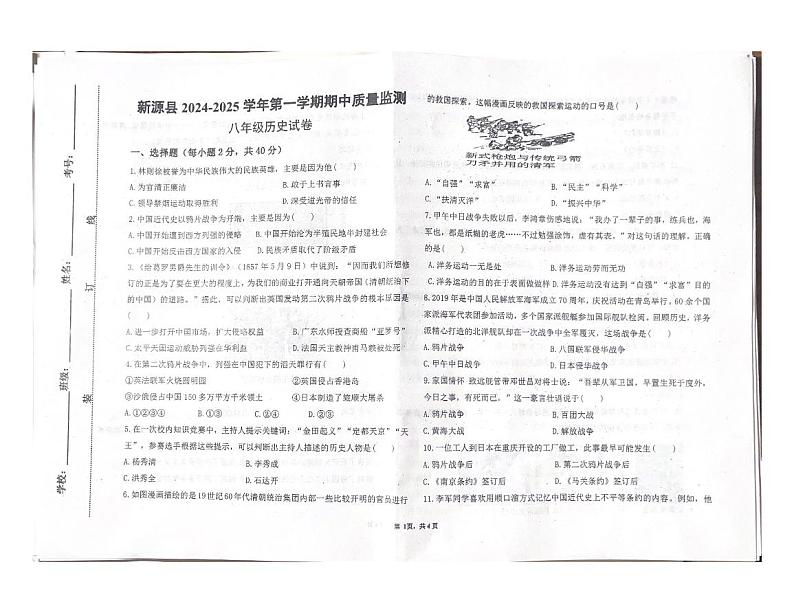 新源县 2024-2025 学年第一学期期中质量监测
八年级历史试卷
一、选择题（每小题 2 分，共 40 分）
1.林则徐被誉为中华民族伟大的民族英雄，主要是因为他（　　）
A.为官清正廉洁　B.敢于上书言事
C.领导禁烟运动取得胜利　D.深受道光帝的信任
2.中国近代史以鸦片战争为开端，主要是因为（　　）
A.中国开始遭到西方列强的侵略　B.中国开始沦为半殖民地半封建社会
C.中国开始反击西方国家的入侵　D.民族矛盾取代了阶级矛盾
3.《给葛罗男爵先生的训令》（1857 年 5 月 9 日）中说到：“因而我们所想修
订的正是为了要在更大的程度上，为我们的商业打开通向天朝帝国（清朝统治下
的中国）的道路。”据此，可以判断出英国发动第二次鸦片战争的根本原因是
（　　）
A.进一步打开中国市场，扩大侵略权益　B.广东水师搜查商船“亚罗号”
C.太平天国运动威胁列强在华利益　D.法国天主教教士马赖非法传教
4.在第二次鸦片战争中，列强在中国犯下的滔天罪行有（　　）
①英法联军火烧圆明园　②英国侵占香港岛
③沙俄侵占中国 150 多万平方千米领土　④日本制造了旅顺大屠杀
A.①②③④　B.①③④　C.①③　D.②③
5.在一次校内知识竞赛中，主持人提示关键词：“金田起义”“定都天京”“天
王”，参赛选手根据这些提示，可以判断出主持人描述的历史人物是（　　）
A.杨秀清　B.李秀成
C.洪秀全　D.石达开
6.如图漫画描绘的是 19 世纪 60 年代清朝统治集团内部一些比较开明的官员进行
的救国探索，这幅漫画反映的救国探索运动的口号是（　　）
新式枪炮与传统弓箭
刀矛并用的清军
A.“自强”“求富”　B.“民主”“科学”
C.“扶清灭洋”　D.“振兴中华”
7.甲午中日战争失败以后，李鸿章伤感地说：“我办了一辈子的事，练兵也，海
军也，都是纸糊的老虎……不过勉强涂饰，虚有其表。”对这句话的理解，正确
的是（　　）
A.洋务运动一无是处　B.洋务运动劳而无功
C.洋务运动的目的在于表面做做样　D.洋务运动没有达到“自强”“求富”目的
8.2019 年是中国人民解放军海军成立 70 周年，庆祝活动在青岛举行，60 余个国
家派海军代表团参加活动，多个国家派舰艇参加国际舰队检阅。回顾历史，洋务
派精心打造的北洋舰队却在一次战争中全军覆灭，这场战争是（　　）
A.鸦片战争　B.八国联军侵华战争
C.甲午中日战争　D.日本侵华战争
9.家国情怀 致远舰管带邓世昌对将士说：“吾辈从军卫国，早置生死于度外，
今日之事，有死而已。”这一豪言壮语说于（　　）
A.鸦片战争　B.百团大战
C.黄海大战　D.解放战争
10.一位工人到日本在重庆开设的工厂做工，此事最早可能发生（　　）
A.鸦片战争后　B.第二次鸦片战争后
C.《南京条约》签订后　D.《马关条约》签订后
11.李军同学喜欢用顺口溜方式记忆中国近代史上不平等条约的内容。例如，他
第 1页，共 4 页
考号：
姓名：
班级：
学校：
线
订
装